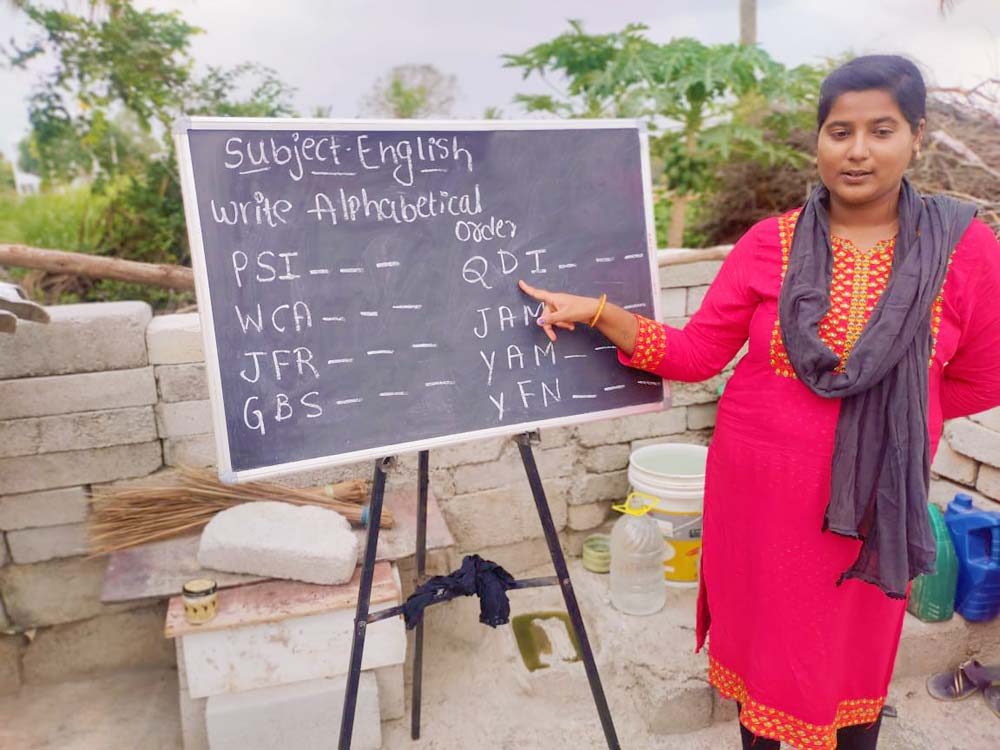 Subject - English
Write Alphabetical
order
PSI _ _ _
WCA _ _ _
JFR _ _ _
GBS _ _ _
QDI _ _ _
JAM _
YAM _ _
YFN _ _